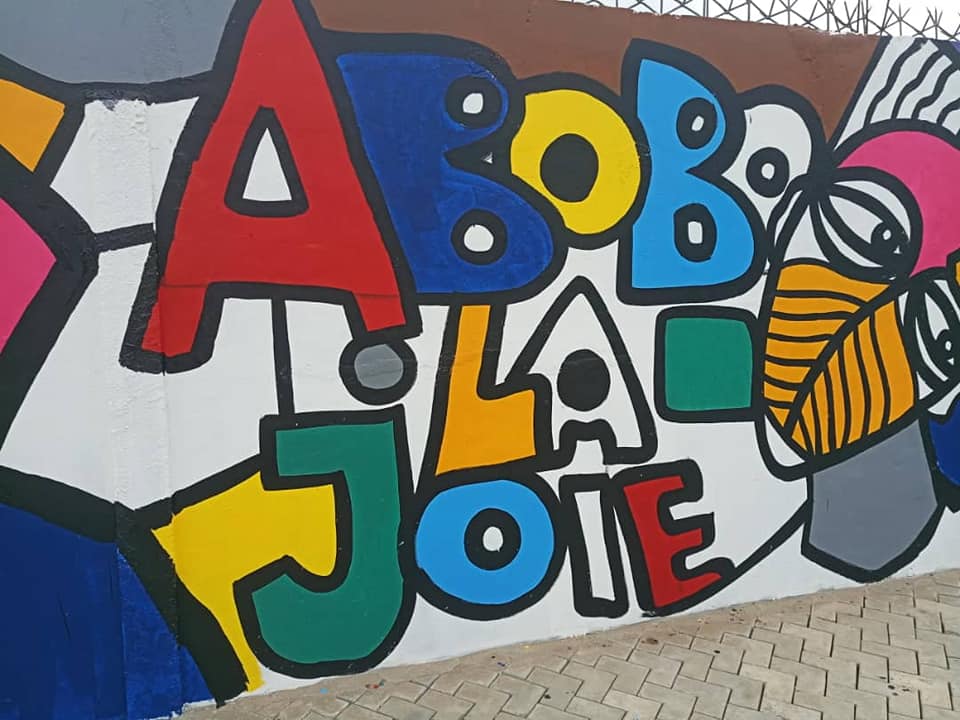 ABOBO
LA
JOIE